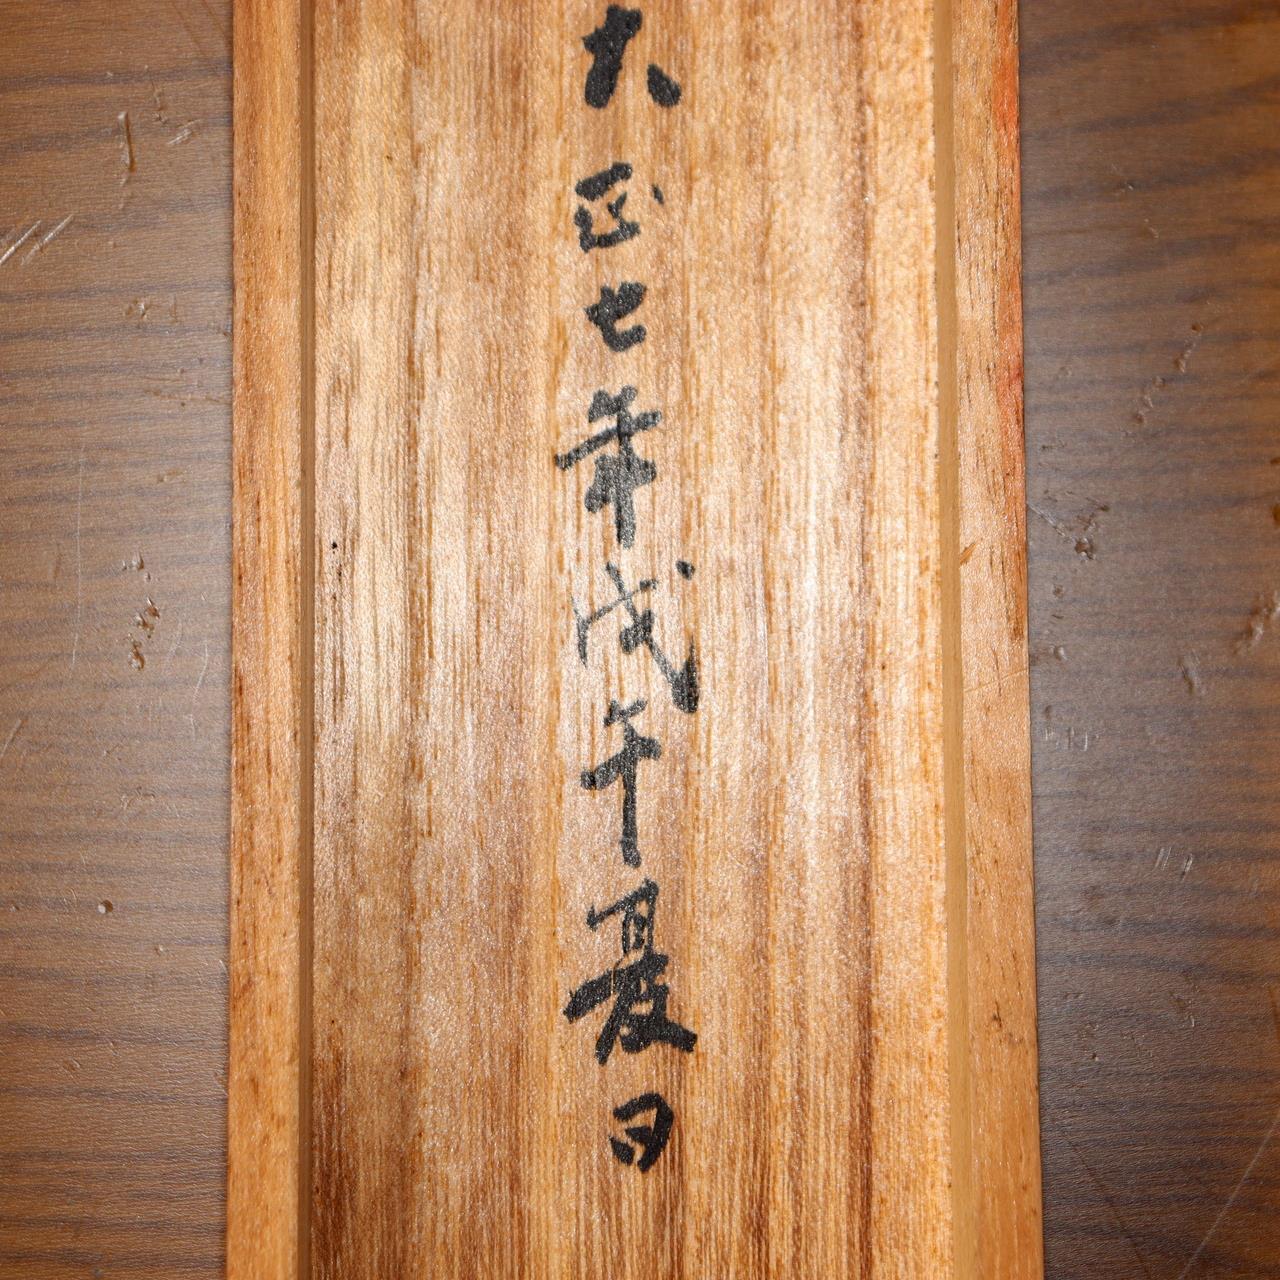 大正七年戊午夏日